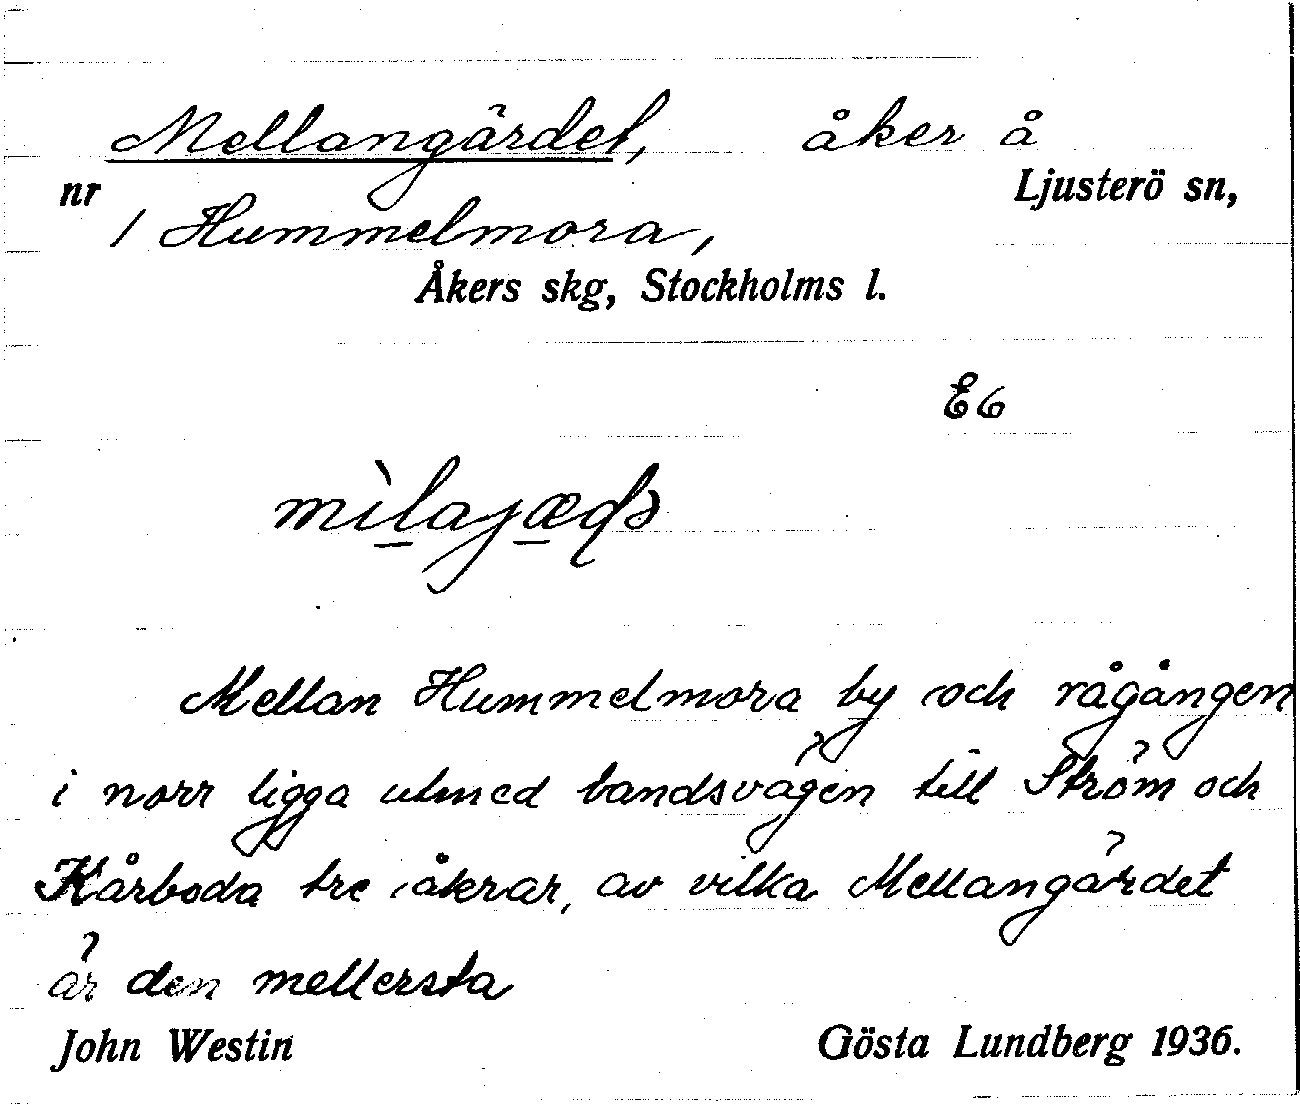 Mellangärdet, åker å
nr Ljusterö sn,
1 Hummelmora,
Åkers skg, Stockholms l.
E6
Mellan Hummelmora by och rågången
i norr ligga utmed landsvägen till Ström och
Kårboda tre åkrar, av vilka Mellangärdet
är den mellersta
John Westin Gösta Lundberg 1936.